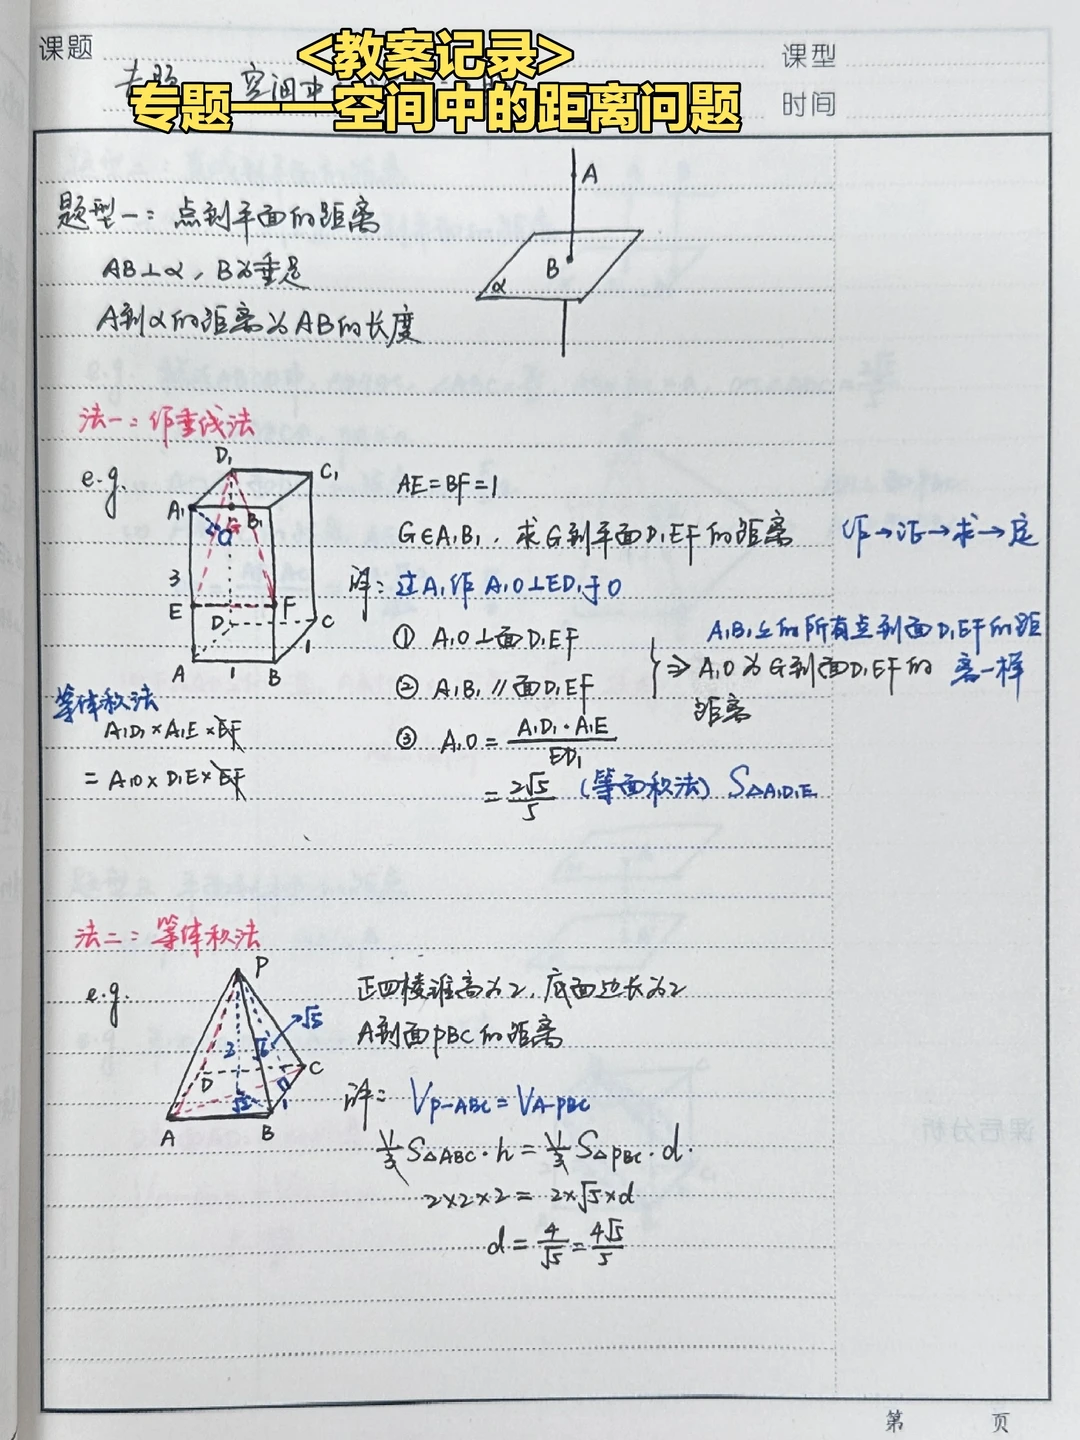 课题
<教案记录>
课型
专题——空间中的距离问题
时间
题型一：点到平面的距离
AB⊥α，B为垂足
A到α的距离为AB的长度
A
B
α
法一：作垂线法
e.g.
D₁
C₁
A₁
B₁
G
O
3
E
F
D
C
A
1
B
1
AE=BF=1
G∈A₁B₁，求G到平面D₁EF的距离
作→证→求→定
详：过A₁作A₁O⊥ED₁于O
① A₁O⊥面D₁EF
② A₁B₁∥面D₁EF
⇒A₁O为G到面D₁EF的
距离
A₁B₁上的所有点到面D₁EF的距
离一样
③ A₁O = A₁D₁·A₁E / ED₁
= 2√5 / 5 (等面积法) S△A₁D₁E
等体积法
A₁D₁×A₁E×EF
= A₁O×D₁E×EF
法二：等体积法
e.g.
P
√5
2
√6
D
C
√2
1
A
B
正四棱锥高为2，底面边长为2
A到面PBC的距离
详：V P-ABC = V A-PBC
1/3 S△ABC·h = 1/3 S△PBC·d.
2×2×2 = 2×√5×d
d = 4/√5 = 4√5/5
课后分析
第 页